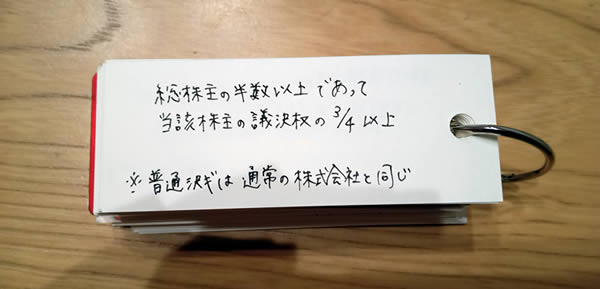 総株主の半数以上であって
当該株主の議決权の3/4以上
※普通決ギは通常の株式会社と同じ